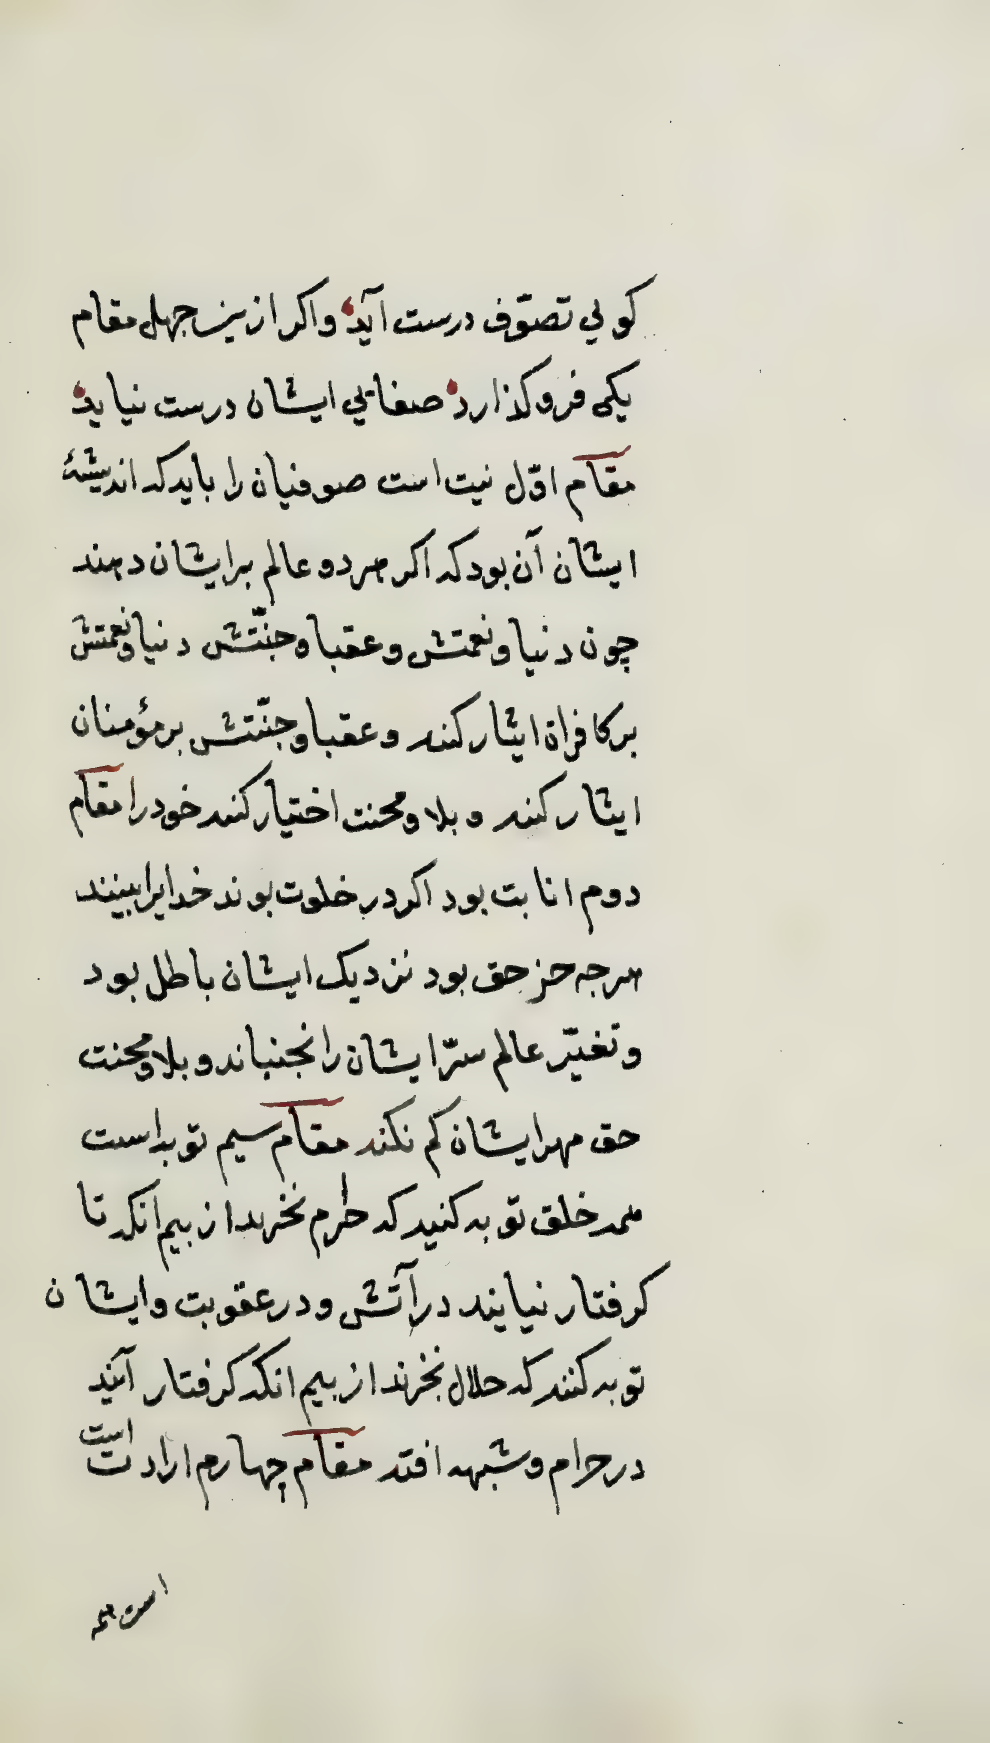 کولی تصوّف درست آید واکر ازین جهل مقام
یکی فروکذارد صفایی ایشان درست نیاید
مقام اوّل نیت است صوفیان را بایدکه اندیشهٔ
ایشان آن بودکه اکر هردو عالم برایشان دهند
چون دنیا ونعمتش وعقبا وجنّتش دنیا ونعمتش
برکافراة ایثار کنند وعقبا وجنّتش برمؤمنان
ایثار کنند و بلا ومحنت اختیار کنند خودرا مقام
دوم انابت بود اکردر خلوت بوند خدایرا بینند
هرجه جز حق بود نزدیک ایشان باطل بود
وتغیّر عالم سرّایشان را نجنباند وبلا ومحنت
حق مهرایشان کم نکند مقام سیم توبه است
همه خلق توبه کنید که حرام نخرید از بیم انکه تا
کرفتار نیایند در آتش و درعقوبت وایشان
توبه کنند که حلال نخرند از بیم انکه کرفتار آیند
درحرام وشبهه افتد مقام چهارم ارادت است
است همه